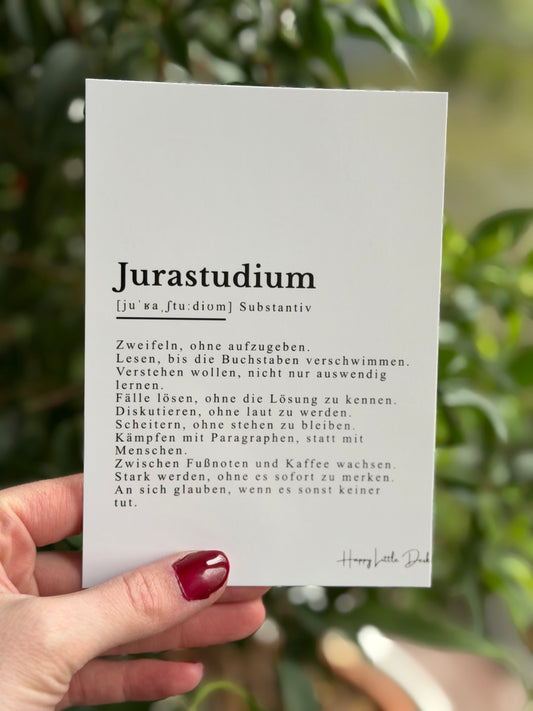 Jurastudium
[juˈʁaˌʃtuːdiʊm] Substantiv
Zweifeln, ohne aufzugeben.
Lesen, bis die Buchstaben verschwimmen.
Verstehen wollen, nicht nur auswendig
lernen.
Fälle lösen, ohne die Lösung zu kennen.
Diskutieren, ohne laut zu werden.
Scheitern, ohne stehen zu bleiben.
Kämpfen mit Paragraphen, statt mit
Menschen.
Zwischen Fußnoten und Kaffee wachsen.
Stark werden, ohne es sofort zu merken.
An sich glauben, wenn es sonst keiner
tut.
Happy Little Desk